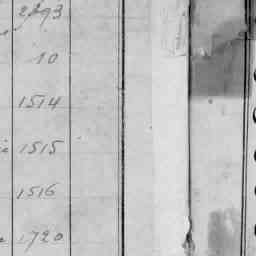 2293
10
1514
1515
1516
1720